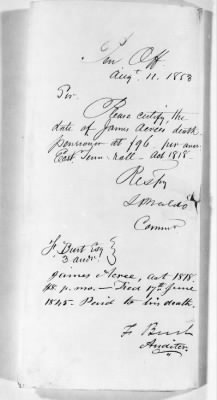 Pen Off
Augt. 11. 1853
Sir.
Please certify the
date of James Acrees death
pensioner at $96 per ann
East Tenn. roll - Act 1818.
Respy
Comnr
F. Burt Esq
3 Audr.
James Acree, act 1818.
$8. p. mo. — Died 17th June
1845 - Paid to his death.
F. Burt
Auditor.